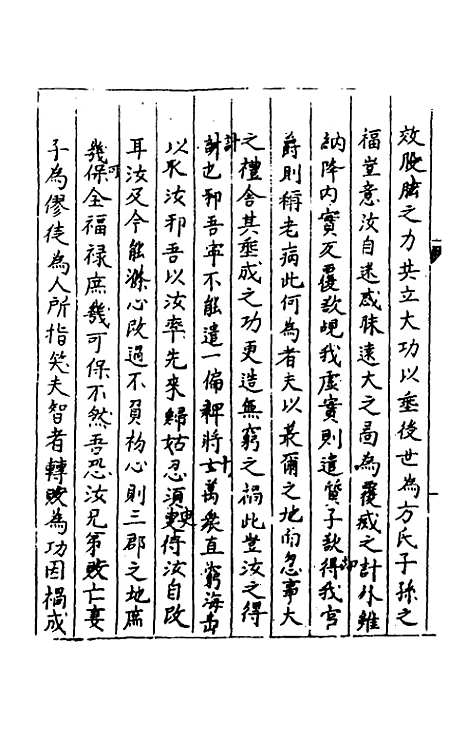 效股肱之力共立大功以垂後世為方氏子孫之
福豈意汝自迷惑昧遠大之啚為覆滅之計外雖
納降內實反覆欲覘我虛實則遣質子欲得我官
爵則稱老病此何為者夫以蕞爾之地而忽事大
之禮舍其垂成之功更造無窮之禍此豈汝之得
計也邪吾寧不能遣一偏裨將士萬衆直窮海島
以取汝邪吾以汝率先來歸姑忍須臾待汝自改
耳汝及今能滌心改過不負初心則三郡之地庶
幾可保全福祿庶幾可保不然吾恐汝兄弟敗亡妻
子為僇徒為人所指笑夫智者轉敗為功因禍成